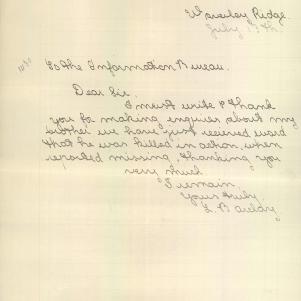 Waverley Ridge.
July 13th.
To the Information Bureau.
Dear Sir.
I must write & thank
you for making enquires about my
brother we have just received word
that he was killed in action, when
reported missing, thanking you
very much
I remain
Yours truly
L. B